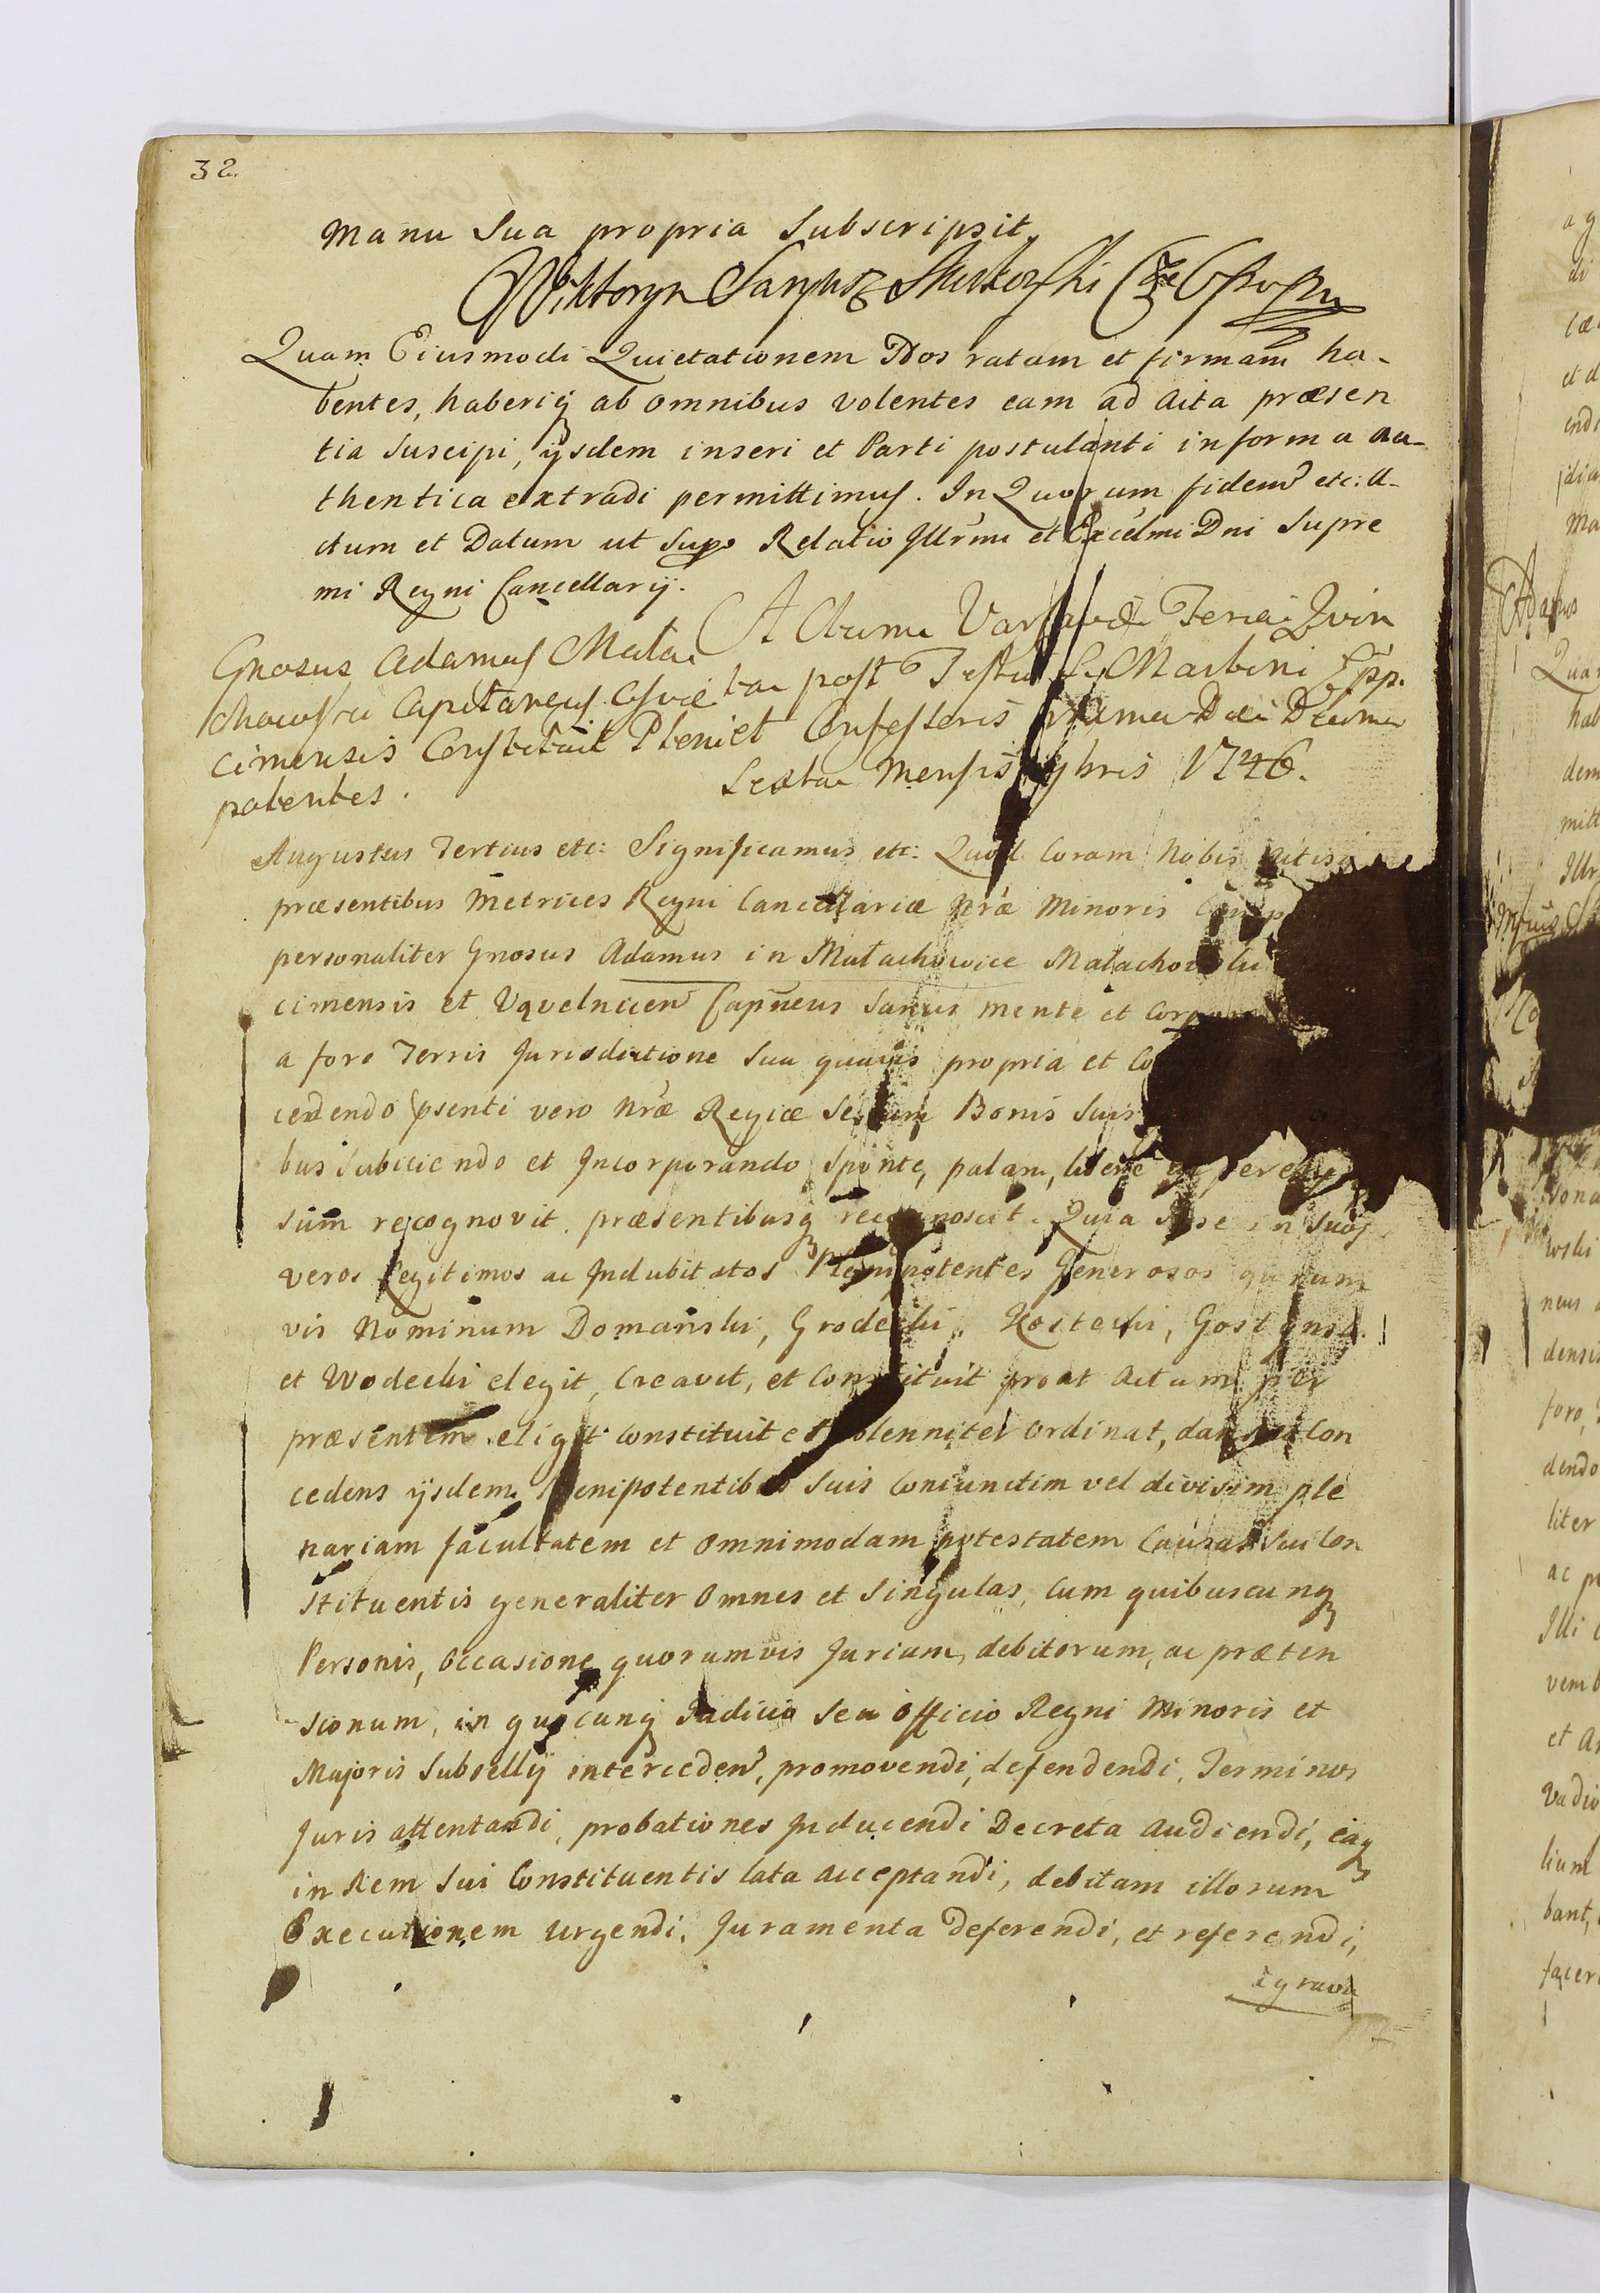 32.
Manu Sua propria Subscripsit
Wiktoryn
Quam Eiusmodi Quietationem Nos ratam et firmam ha-
bentes, haberiq ab omnibus volentes eam ad Acta præsen
tia Suscipi, ijsdem inseri et Parti postulanti in forma au-
thentica extradi permittimus. In Quorum fidem etc: A-
ctum et Datum ut Supo Relatio Illrmi et Excelmi Dni Supre
mi Regni Cancellarij.
Gnosus Adamus Mała
chowski Capitaneus Oswie
cimensis Constituit Pleni
potentes.
Actum Varsaviæ Feria Quin
ta post Festum S. Martini Epp.
et Confessoris proxima Die Decima
Sexta Mensis 9bris 1746.
Augustus Tertius etc: Significamus etc: Quod Coram Nobis Actisq
præsentibus Metrices Regni Cancellariæ Nræ Minoris
personaliter Gnosus Adamus in Małachowice Małachowski
cimensis et Capneus Sanus mente et
a foro Terris Jurisdictione Sua quavis propria et
cedendo psenti vero Nræ Regiæ Se Bonis Suis
bus Subiiciendo et Incorporando Sponte, palam, libere
sum recognovit præsentibusq recognoscit. Quia Ipse in Suos
veros Legitimos ac Indubitatos Plenipotentes Generosos quorum
vis Nominum Domański, Grodecki, Kostecki,
et Wodecki elegit, Creavit, et Constituit prout Actum per
præsentem eligit constituit et Solenniter Ordinat, dans et Con
cedens ijsdem Plenipotentibus Suis Coniunctim vel divisim ple
nariam facultatem et omnimodam potestatem Causas Sui Con
stituentis generaliter Omnes et Singulas, Cum quibuscunq
Personis, occasione quorumvis Jurium, debitorum, ac præten
sionum, in quocunq Judicio Seu Officio Regni Minoris et
Majoris Subsellij interceden, promovendi, defendendi, Terminos
Juris attentandi, probationes Inducendi Decreta Audiendi, eaq
in Rem Sui Constituentis lata acceptandi, debitam illorum
Executionem urgendi, Juramenta deferendi, et referendi,